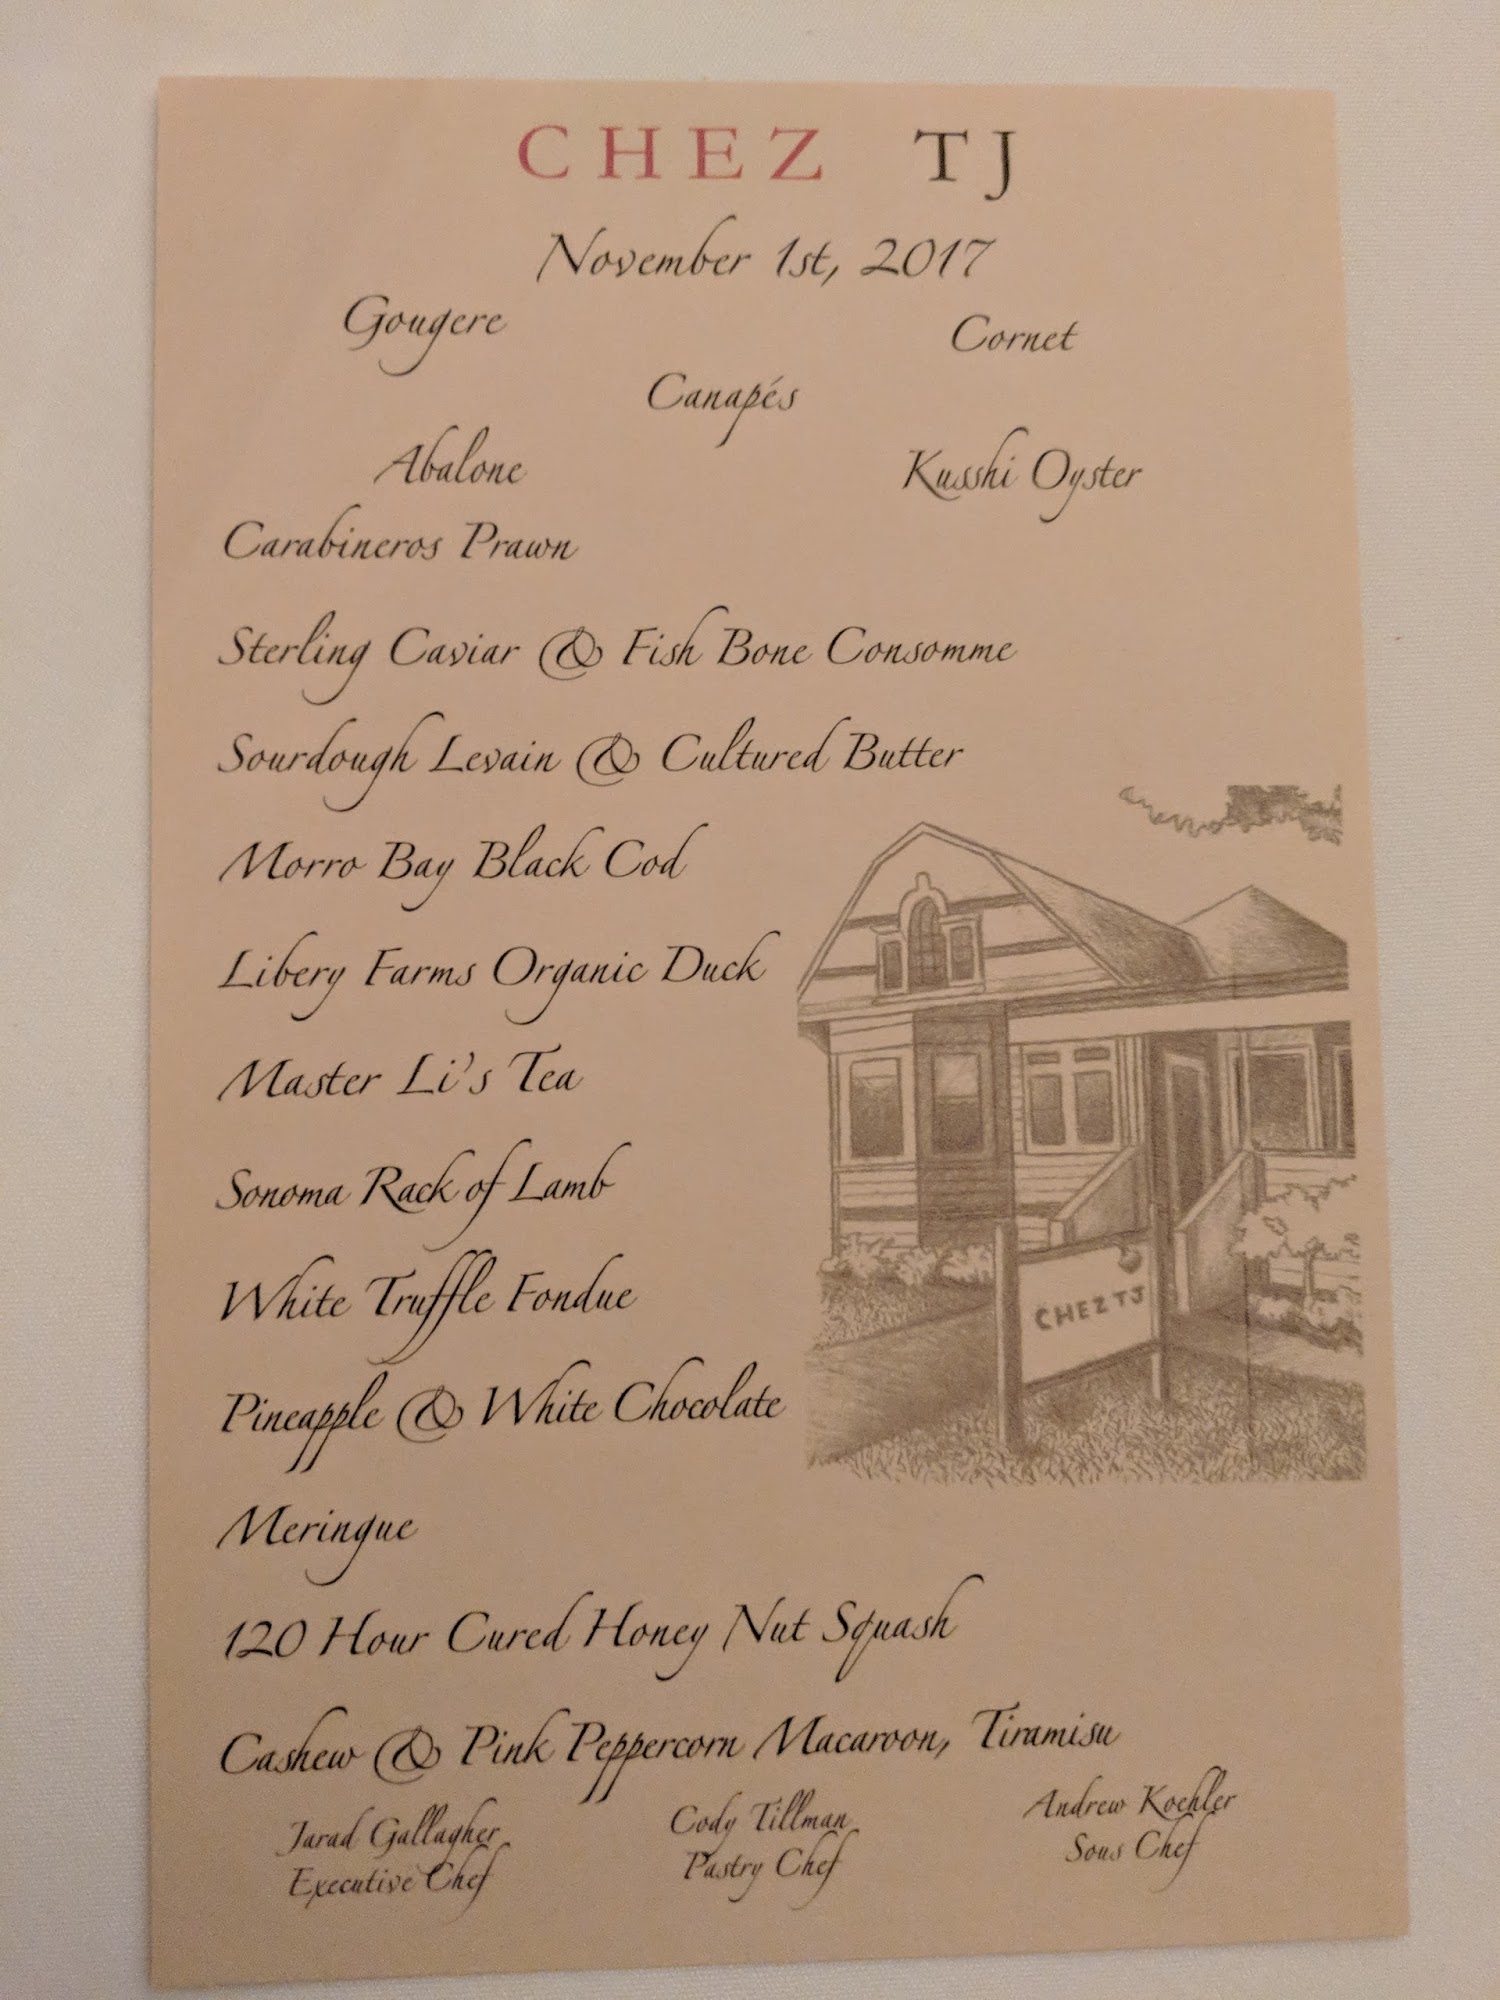 CHEZ TJ
November 1st, 2017
Gougere Cornet
Canapés
Abalone Kusshi Oyster
Carabineros Prawn
Sterling Caviar & Fish Bone Consomme
Sourdough Levain & Cultured Butter
Morro Bay Black Cod
Libery Farms Organic Duck
Master Li's Tea
Sonoma Rack of Lamb
White Truffle Fondue
CHEZ TJ
Pineapple & White Chocolate
Meringue
120 Hour Cured Honey Nut Squash
Cashew & Pink Peppercorn Macaroon, Tiramisu
Jarad Gallagher
Executive Chef
Cody Tillman
Pastry Chef
Andrew Koehler
Sous Chef